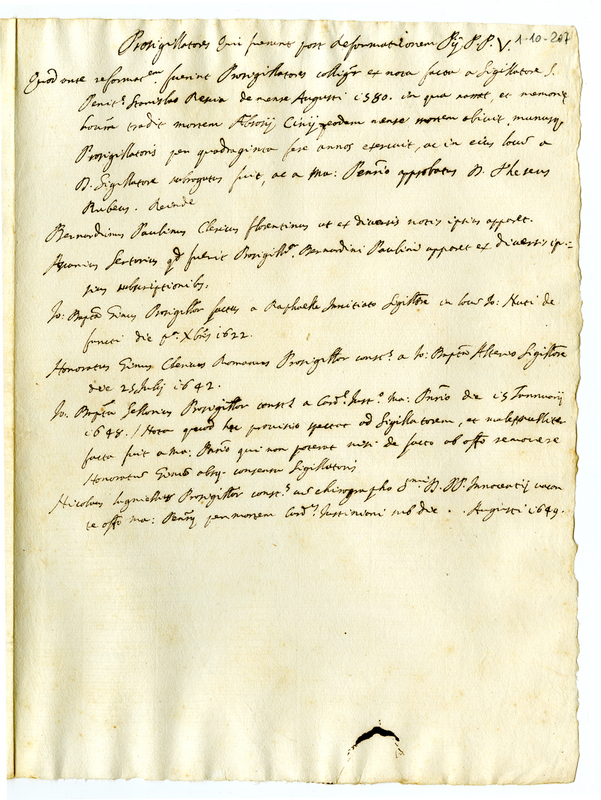 Prosigillatores qui fuerunt post deformationem Pij P.P. V. 1-10-207
Quod ante reformac.em fuerint Prosigillatores colligr ex nota facta a Sigillatore S.
Penit.s Stanislao de mense Augusti 1580. in qua narrat, et memorie
tradit mortem eodem mense mortem obivit, munusq.
Prosigillatoris per quadraginta fere annos exercuit, ac in eius locu a
D. Sigillatore subrogatus fuit, ac a Ma: Penrio approbatus D. Theseus
Rubeus. Deinde
Bernardinus Paulinus Clericus florentinus ut ex diversis notis ipsius apparet.
Ascanius Sertorius qd fuerit Prosigillr. Bernardini Paulini apparet ex diversis ip=
sius subscriptionibs.
Io: Bapta Prosigillor factus a Raphaele Sigillore in locu Io: de
functi die p.a Xbris 1622.
Honoratus Clericus Romanus Prosigillor const.s a Io: Bapta Alterio Sigillore
die 25 Julij 1642.
Io. Bapta Prosigillor const.s a Card. Just.o Ma: Pnrio die 15 Januarij
1648. / Nota quod hec provisio spectat ad Sigillatorem, et male
facta fuit a Ma: Pnrio qui non poterat nisi de facto ab offo removere
Honoratu absq. consensu Sigillatoris
Nicolaus Prosigillor const.s cu chirographo S.mi D. N. Innocentij vacan
te offo Ma: Penrij per mortem Card. Justiniani sub die . . Augusti 1649.